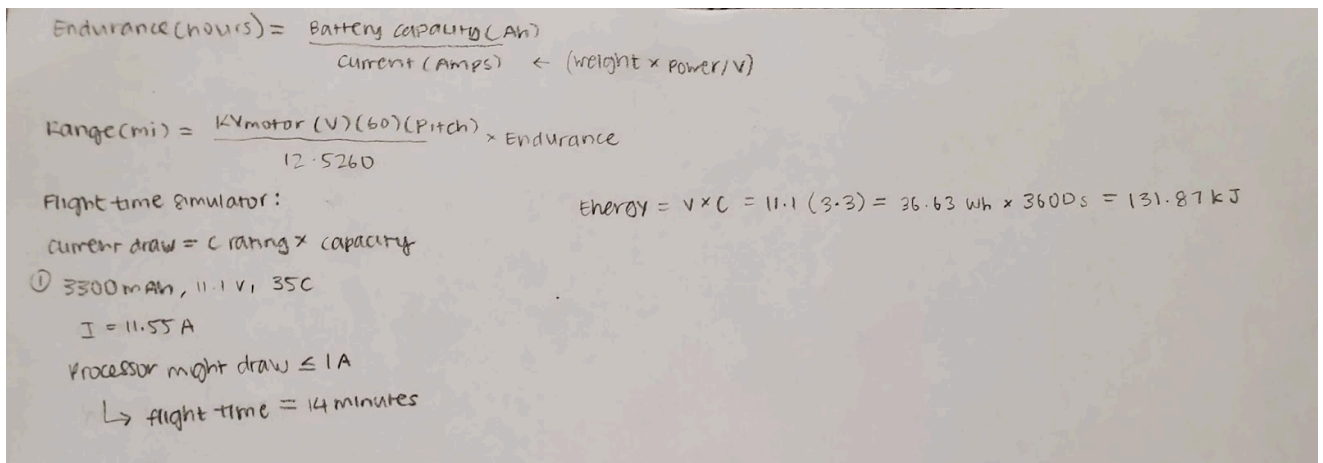 Endurance (hours) = Battery capacity (Ah)
Current (Amps) ← (weight x power/V)
Range (mi) = KVmotor (V)(60)(Pitch) x Endurance
12.5260
Flight time simulator:
Energy = V x C = 11.1 (3.3) = 36.63 Wh x 3600s = 131.87 kJ
current draw = C rating x capacity
① 3300 mAh, 11.1 V, 35C
I = 11.55 A
Processor might draw ≤ 1A
↳ flight time = 14 minutes